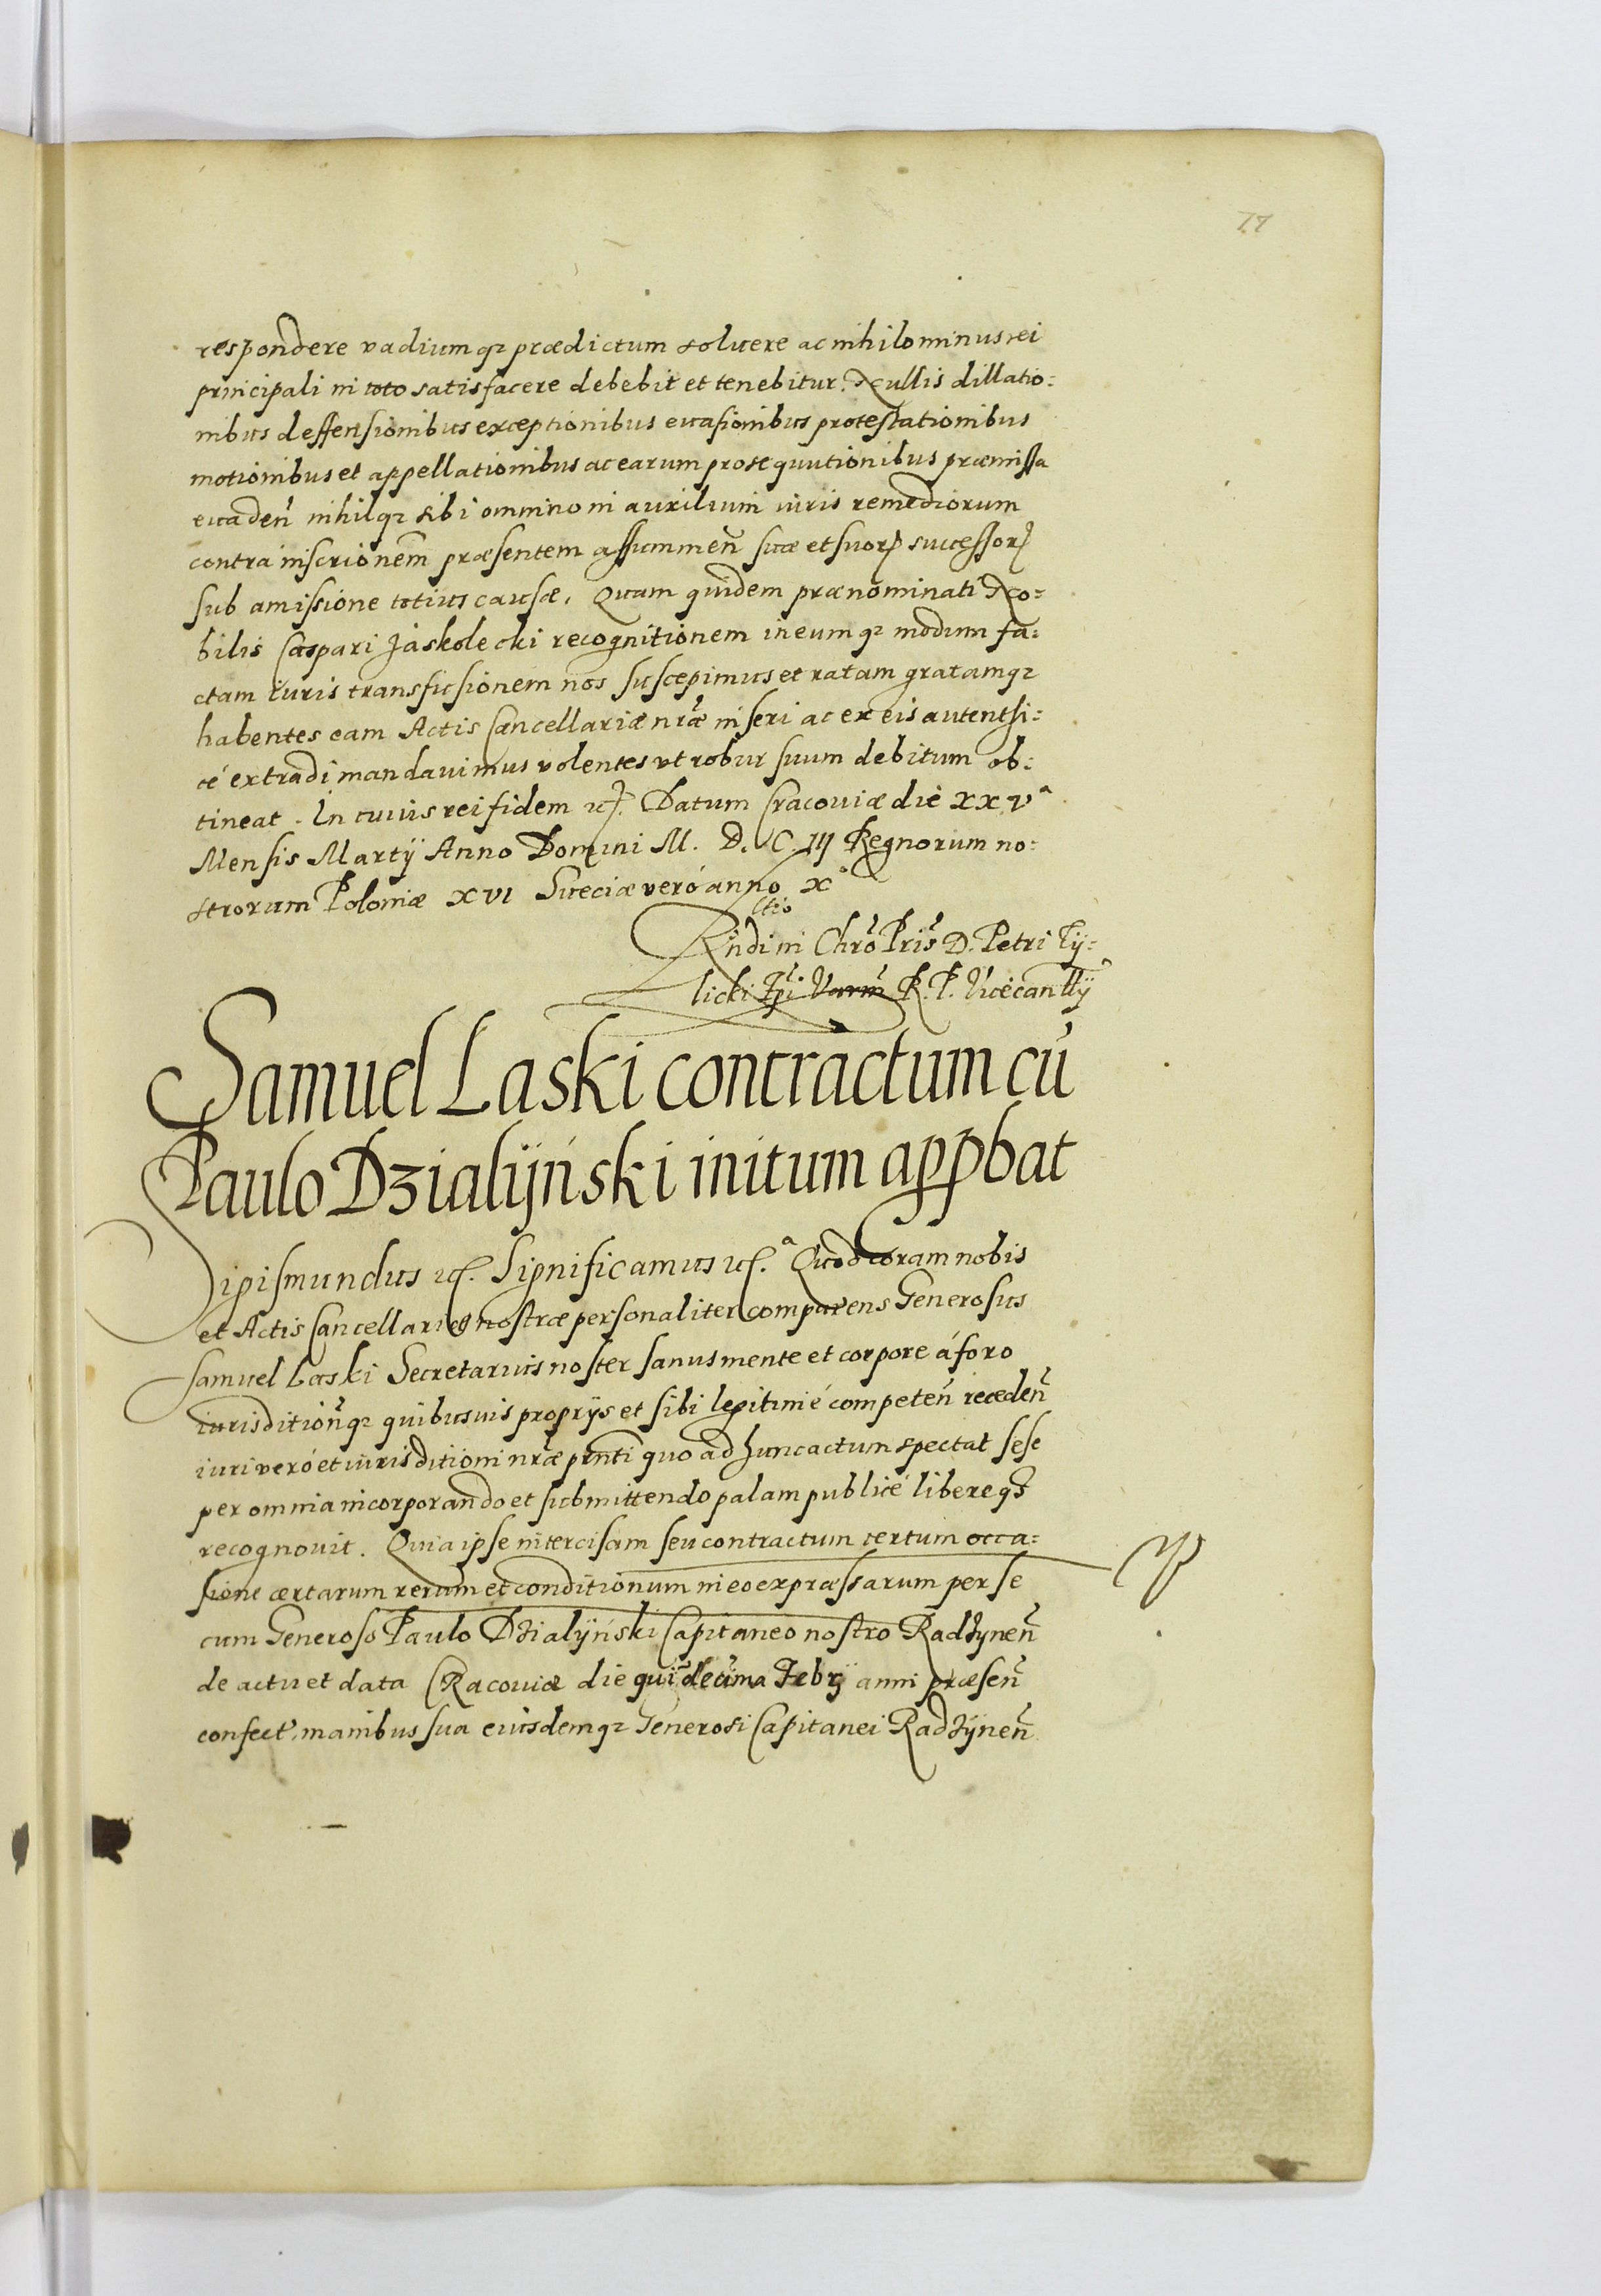 77
respondere vadiumq₃ prædictum soluere ac nihilominus rei
principali in toto satisfacere debebit et tenebitur. Nullis dillatio:
nibus deffensionibus exceptionibus euasionibus protestationibus
motionibus et appellationibus ac earum prosequutionibus præmissa
euadeñ nihilq₃ sibi omnino in auxilium iuris remediorum
contra inscrionem̃ præsentem assummeñ suæ et suorꝝ successorꝝ
sub amissione totius causæ. Quam quidem prænominati No:
bilis Caspari Jaskolecki recognitionem in eumq₃ modum fa:
ctam iuris transfusionem nos suscepimus et ratam gratamq₃
habentes eam Actis Cancellariæ nr̃æ inseri ac ex eis autenthi:
cé extradi mandauimus volentes vt robur suum debitum ob:
tineat. In cuius rei fidem etc. Datum Cracouiæ die XXVᵃ
Mensis Martÿ Anno Domini M. D. C. III Regnorum no:
strorum Poloniæ XVI Sueciæ veró anno X°
Rñdi in Chrõ Pris̃ D. Petri Tÿ:
licki Ep̃i Varm̃ R. P. Vicecanllÿ
Samuel Laski contractum cū
Paulo Dzialÿński initum apꝓbat
Sigismundus etc. Significamus etc.ᵃ Quod coram nobis
et Actis Cancellariæ nostræ personaliter comparens Generosus
Samuel Laski Secretarius noster sanus mente et corpore á foro
iurisditioñq₃ quibusuis proprÿs et sibi legitimé competeñ recedeñ
iuri veró et iurisditioni nr̃æ pñti quo ad hunc actum spectat sese
per omnia incorporando et submittendo palam publicé libereq₃
recognouit. Quia ipse intercisam seu contractum certum occa:
sione certarum rerum et conditionum in eo expræssarum per se
cum Generoso Paulo Dzialÿński Capitaneo nostro Radzyneñ
de actu et data Cracouiæ die quĩdecima Febrÿ anni præseñ
confect. manibus sua eiusdemq₃ Generosi Capitanei Radzÿneñ